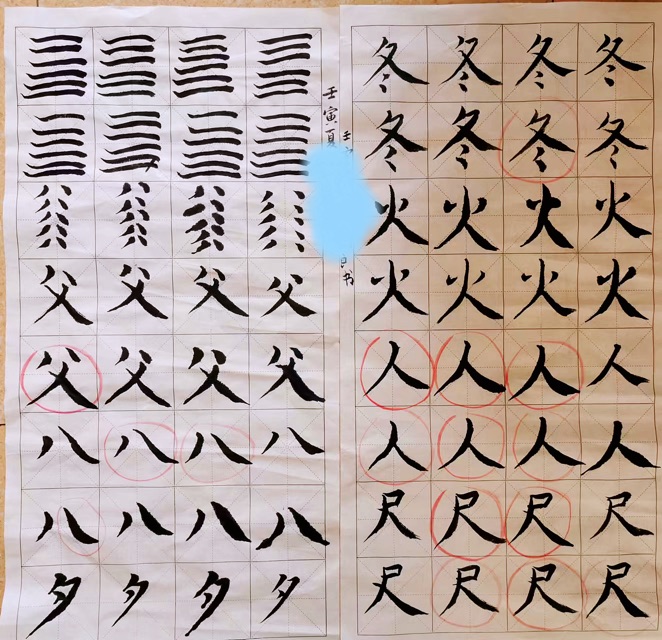 父父父父
父父父父
八八八八
八八八八
夕夕夕夕
壬寅夏
壬
书
冬冬冬冬
冬冬冬冬
火火火火
火火火火
人人人人
人人人人
尺尺尺尺
尺尺尺尺